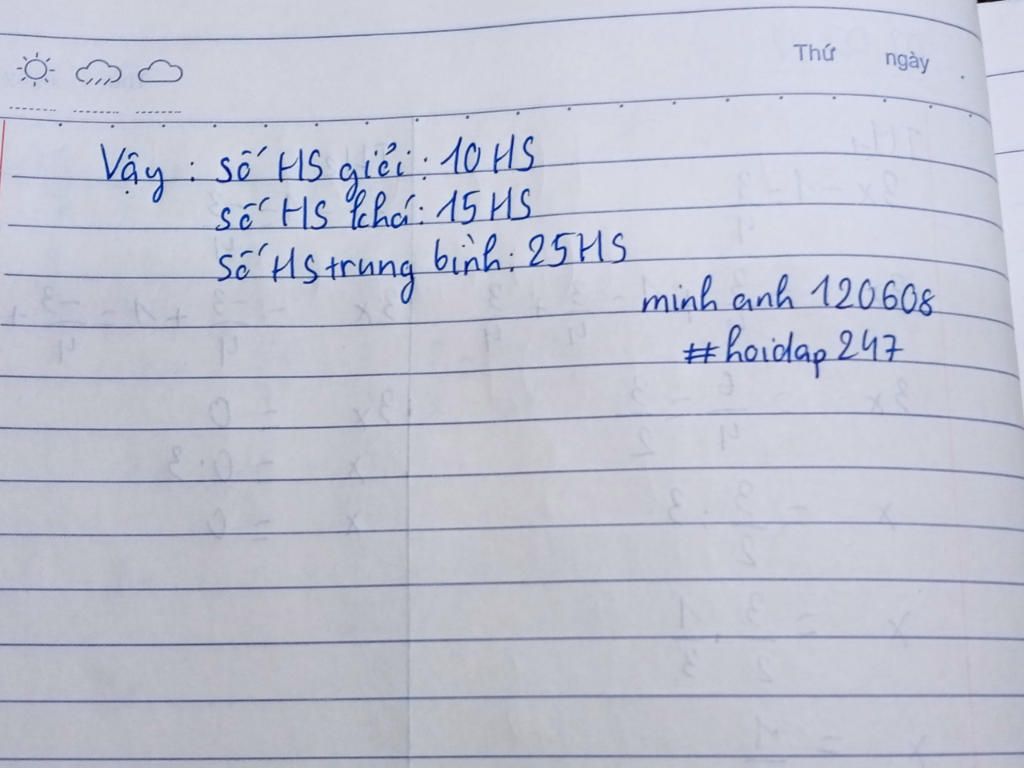 Thứ ngày
Vậy : Số HS giỏi : 10 HS
Số HS khá : 15 HS
Số HS trung bình : 25 HS
minh anh 120608
#hoidap 247